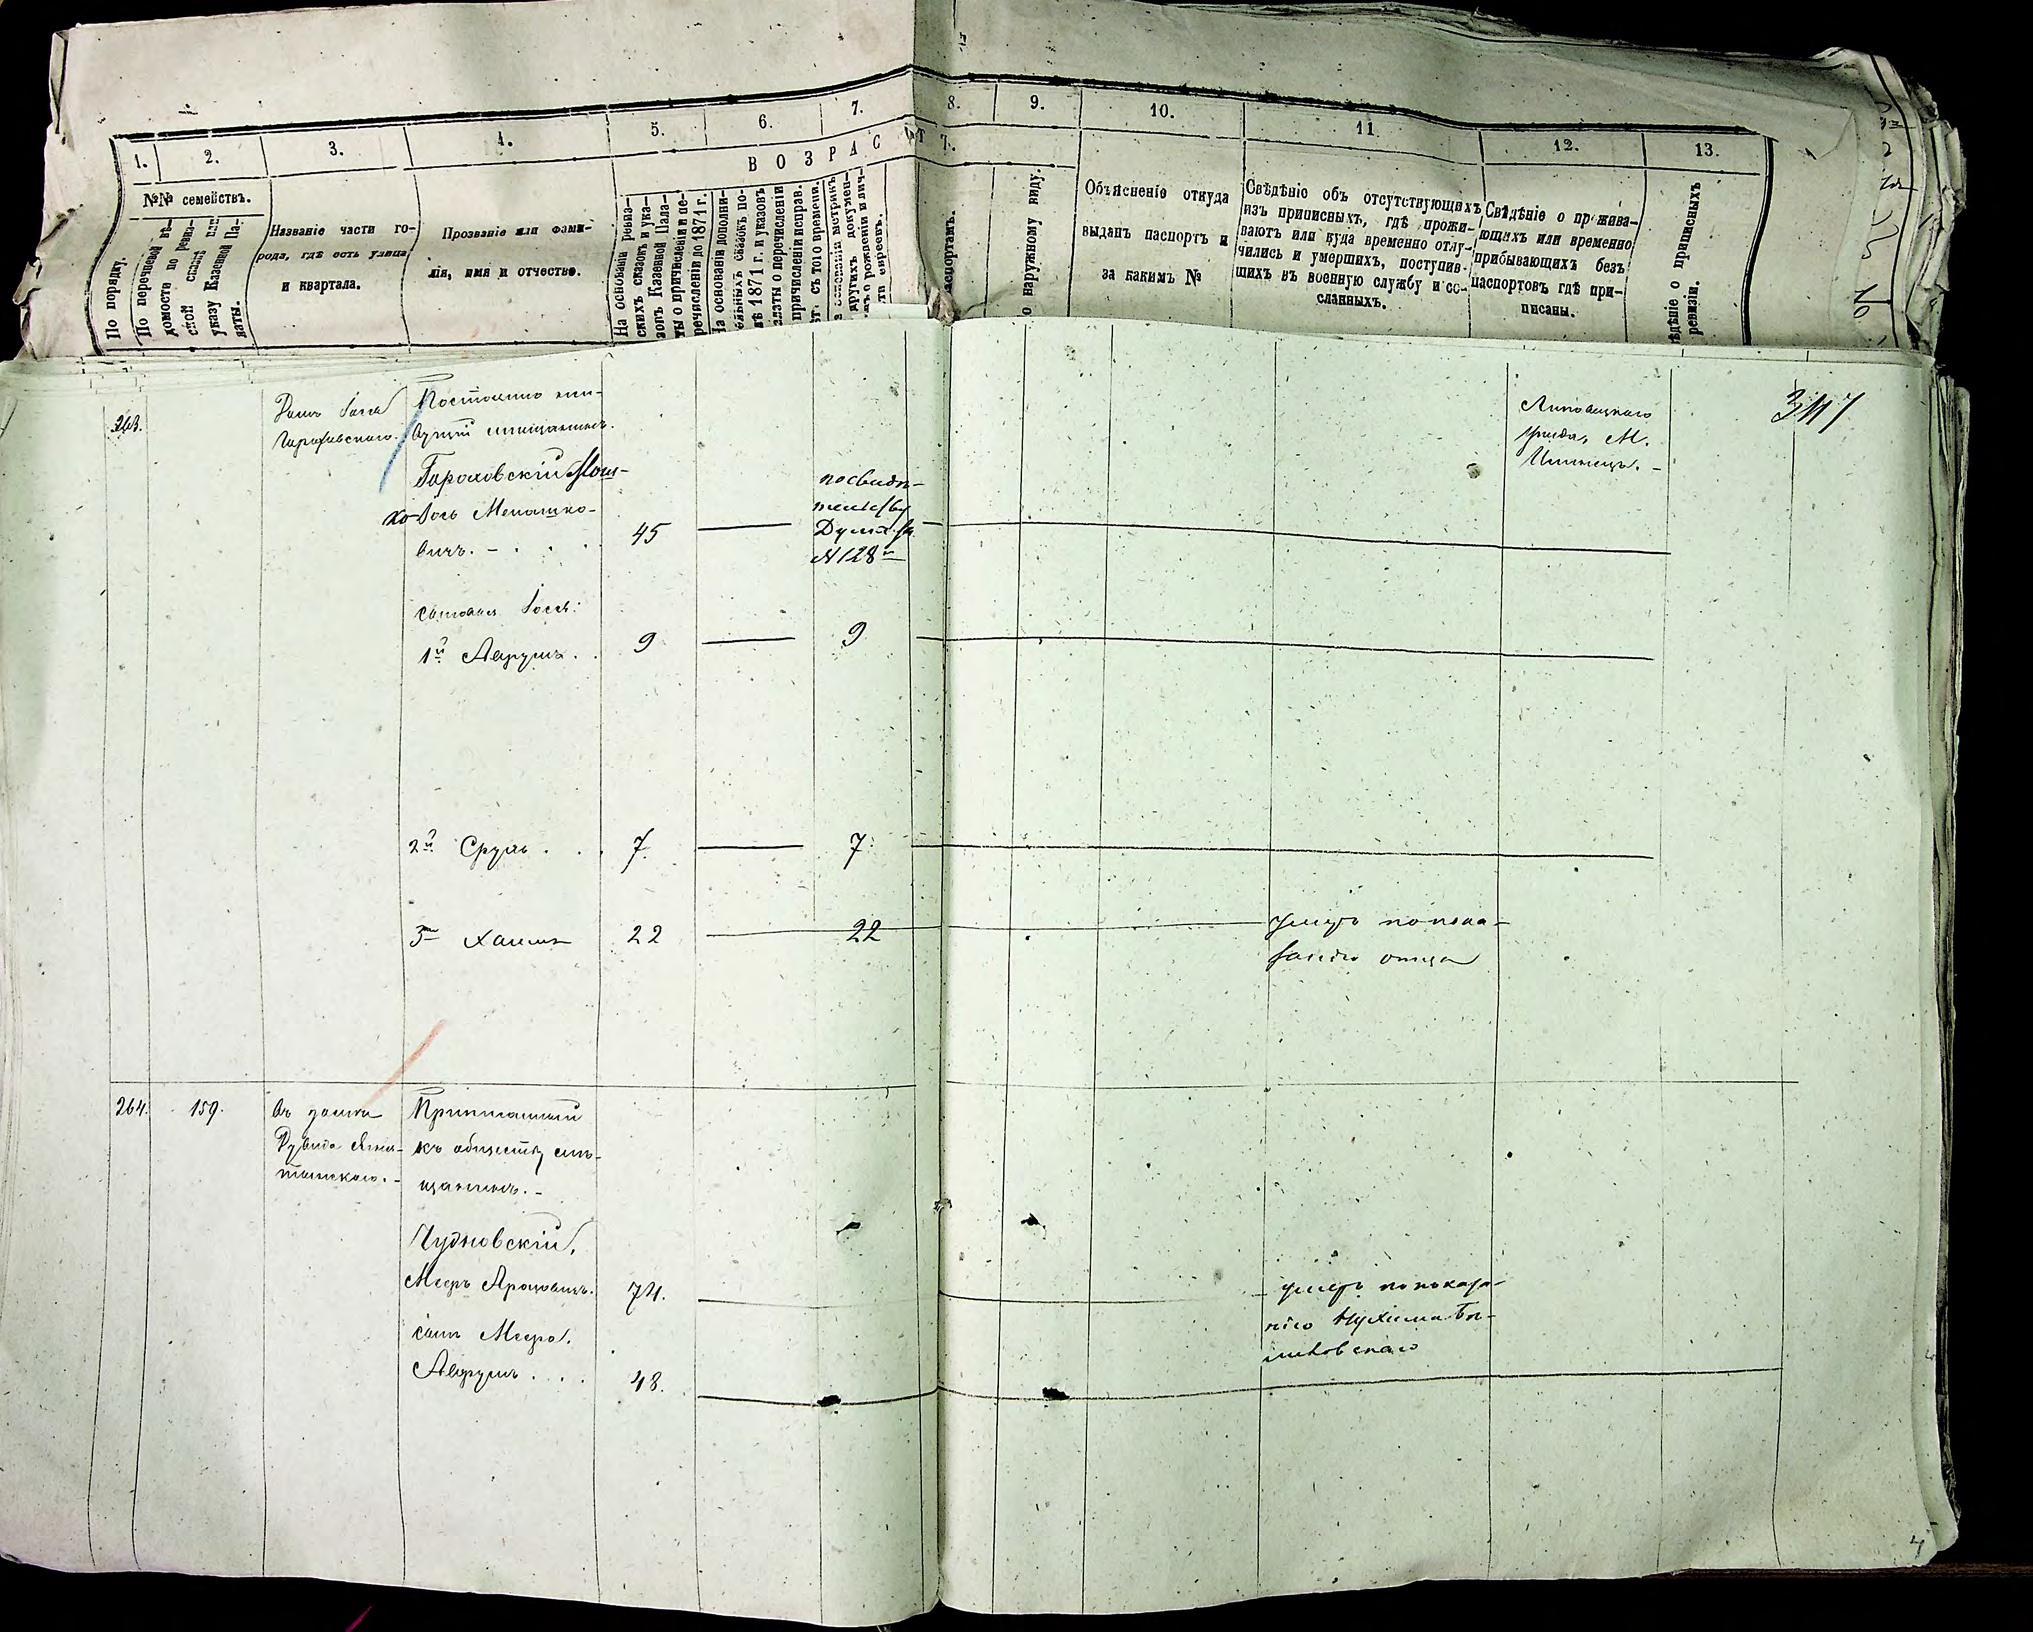 1. 2. 3. 4. 5. 6. 7. 8. 9. 10. 11 12. 13.
В О З Р А С Т Ъ.
№№ семействъ.
По порядку.
По перечневой вѣ-
домости по ревиз-
ской сказкѣ или
указу Казенной Па-
латы.
Названіе части го-
рода, гдѣ есть улица
и квартала.
Прозваніе или фами-
лія, имя и отчество.
На основаніи ревиз-
скихъ сказокъ и ука-
зовъ Казенной Пала-
ты о причисленіи и пе-
речисленіи до 1871 г.
На основаніи дополни-
тельныхъ сказокъ по-
слѣ 1871 г. и указовъ
палаты о перечисленіи
причисленіи исправ.
лѣт. съ того времени.
На основаніи метрикъ
и другихъ докумен-
товъ о рожденіи и лич-
ности евреевъ.
паспортамъ.
По наружному виду.
Объясненіе откуда
выданъ паспортъ и
за какимъ №
Свѣдѣніе объ отсутствующихъ
изъ приписныхъ, гдѣ прожи-
ваютъ или куда временно отлу-
чились и умершихъ, поступив-
шихъ въ военную службу и со-
сланныхъ.
Свѣдѣніе о прожива-
ющихъ или временно
прибывающихъ безъ
паспортовъ гдѣ при-
писаны.
Свѣдѣніе о приписныхъ
ревизіи.
347
263.
Домъ
Гороховскаго.
Постоянно жи-
вущій мещанинъ.
Гороховскій Мош-
ко Іось Менашко-
вичъ. -
45
по свидѣ-
тельству
Думы за
№ 128
Липовецкаго
уѣзда, М.
Ильинецъ. -
сыновья Іося:
1й Аврумъ. 9 9
2й Сруль . . 7. 7.
3й Хаимъ 22 22
умеръ по пока-
занію отца
264. 159.
въ домѣ
Дувида
Приписанный
къ обществу мѣ-
щанинъ. -
Чудновскій,
Мееръ Ароновичъ. 74.
умеръ по показа-
нію Нухима Бѣ-
ликовскаго
сынъ Меера.
Аврумъ . . . 48.